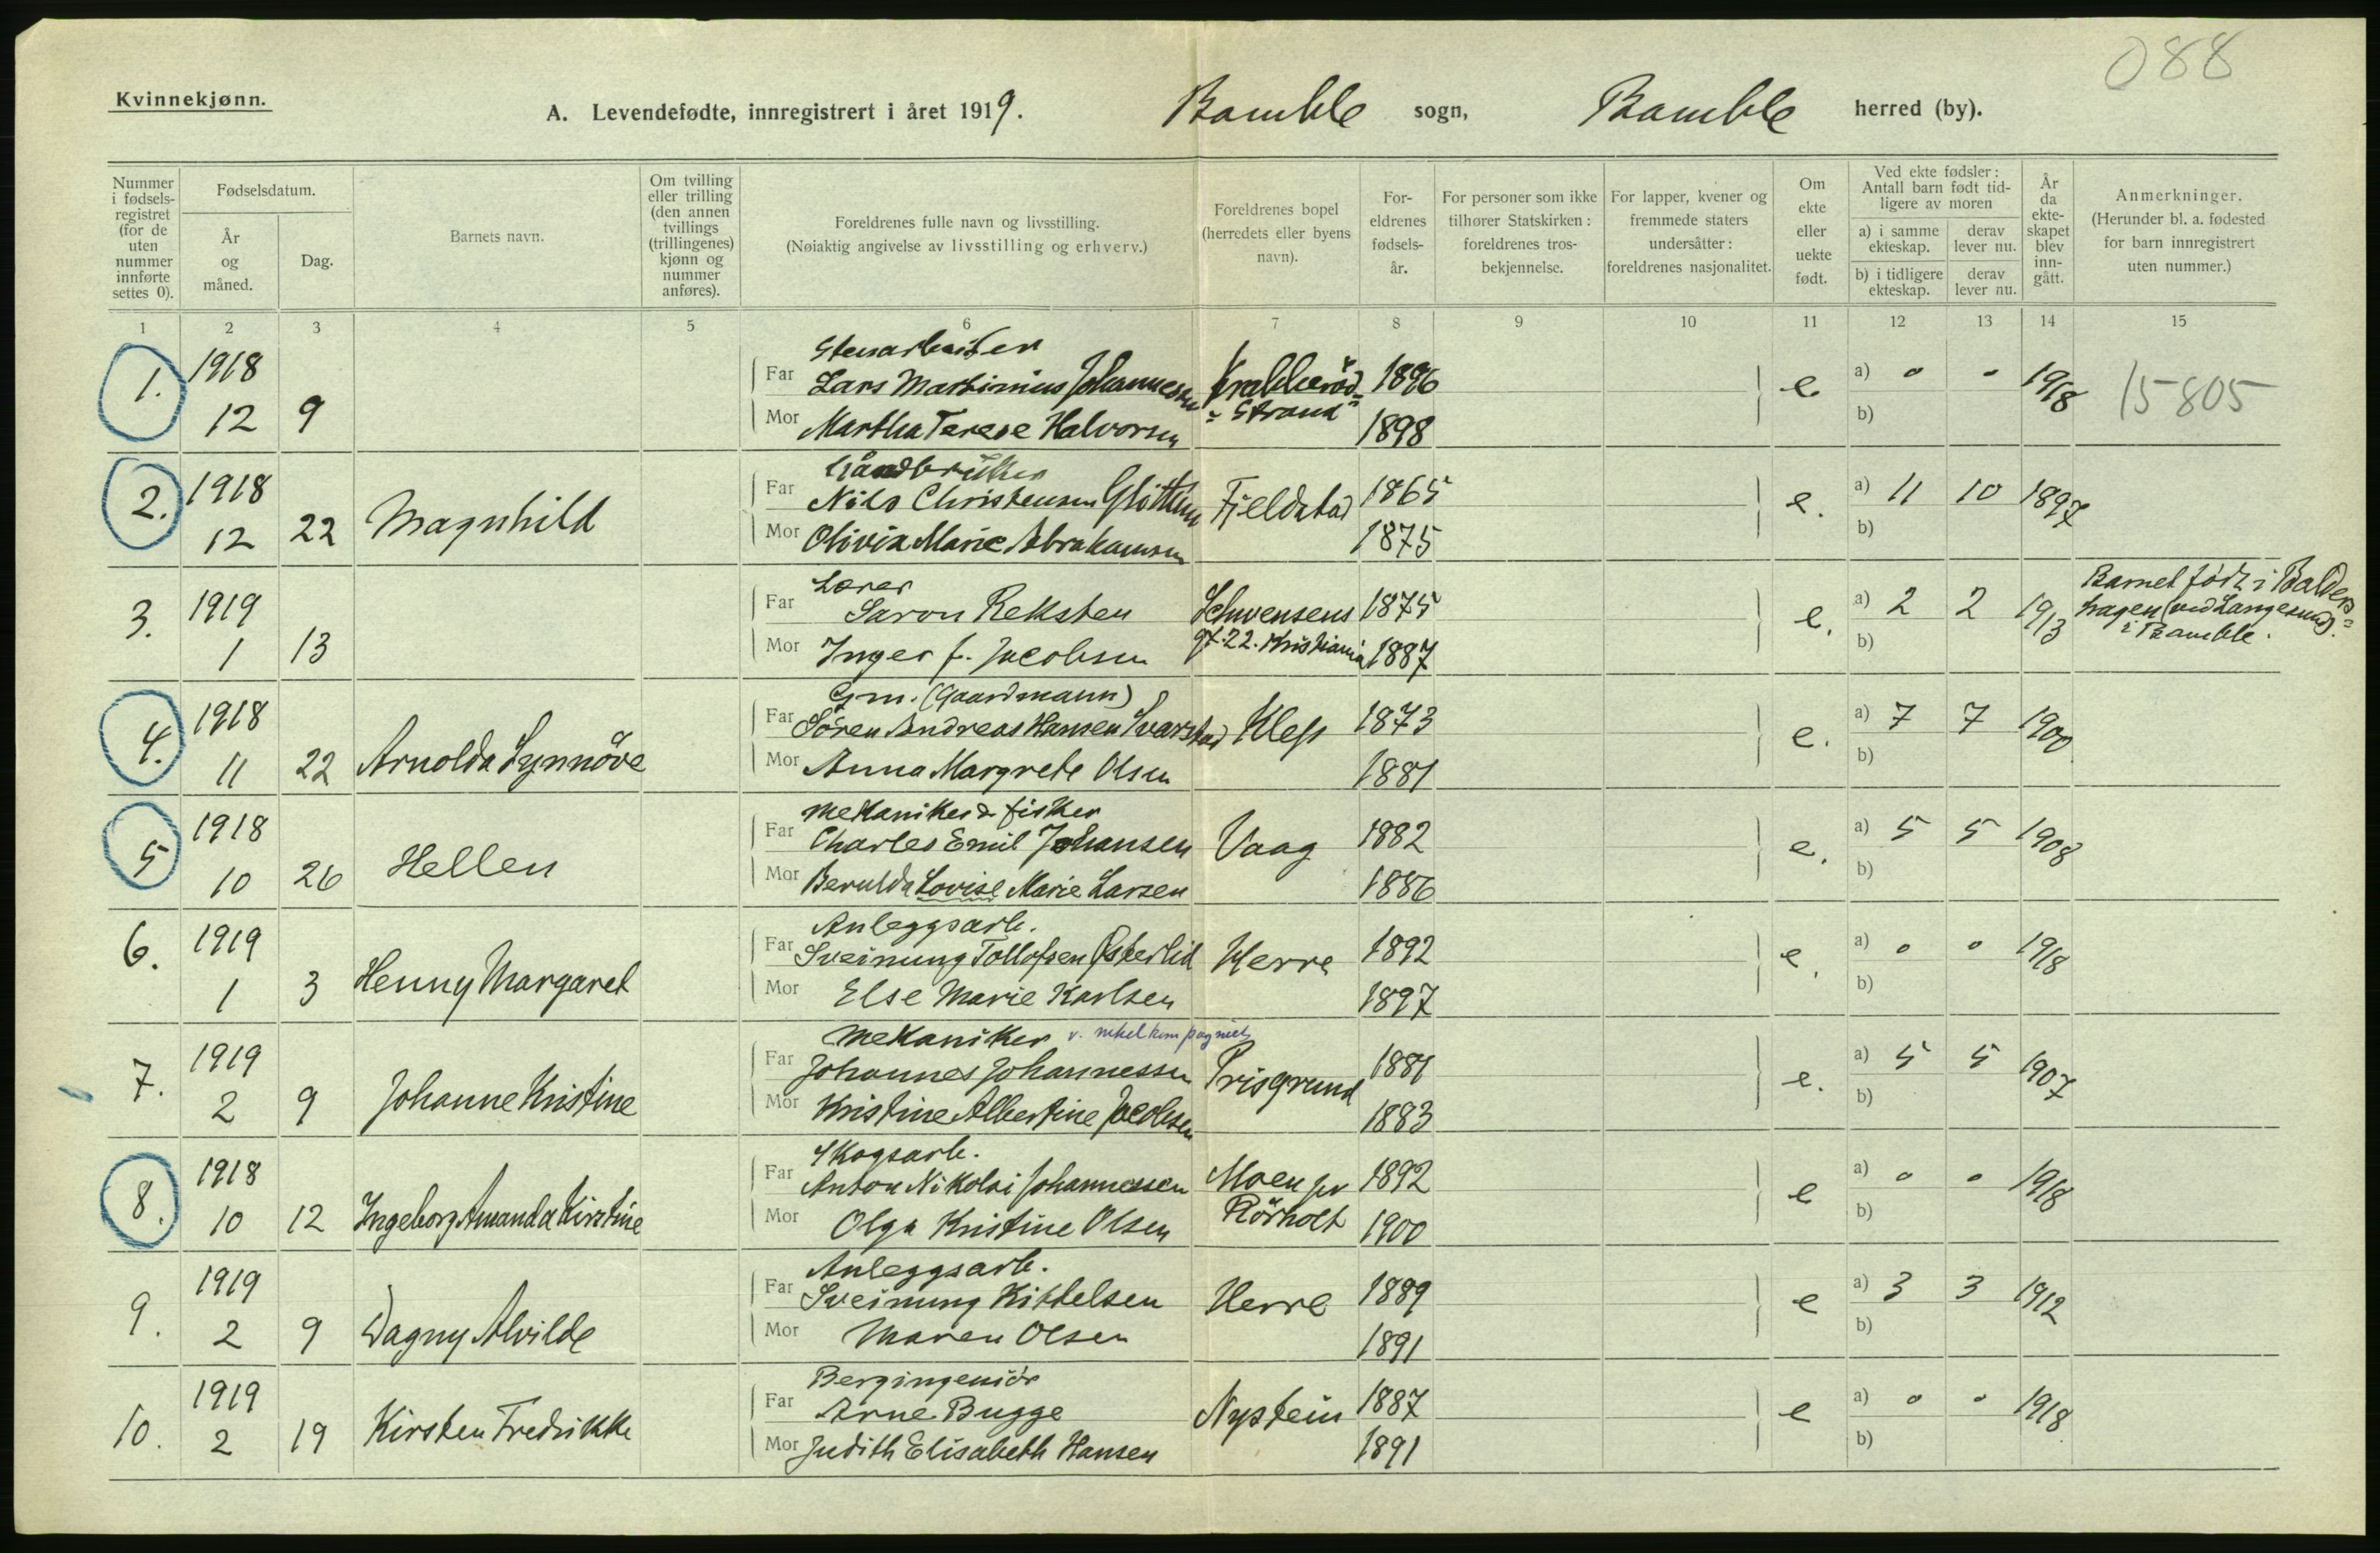 088
Kvinnekjønn.
A. Levendefødte, innregistrert i året 1919. Bamble sogn, Bamble herred (by).
Nummer i fødsels-registret (for de uten nummer innførte settes 0).
Fødselsdatum.
År og måned.
Dag.
Barnets navn.
Om tvilling eller trilling (den annen tvillings (trillingenes) kjønn og nummer anføres).
Foreldrenes fulle navn og livsstilling.
(Nøiaktig angivelse av livsstilling og erhverv.)
Foreldrenes bopel (herredets eller byens navn).
For-eldrenes fødsels-år.
For personer som ikke tilhører Statskirken: foreldrenes tros-bekjennelse.
For lapper, kvener og fremmede staters undersåtter: foreldrenes nasjonalitet.
Om ekte eller uekte født.
Ved ekte fødsler: Antall barn født tid-ligere av moren
a) i samme ekteskap.
derav lever nu.
b) i tidligere ekteskap.
derav lever nu.
År da ekte-skapet blev inn-gått.
Anmerkninger.
(Herunder bl. a. fødested for barn innregistrert uten nummer.)
1 2 3 4 5 6 7 8 9 10 11 12 13 14 15
Stenarbeider
1. 1918 Far Lars Martinius Johannesen Krabberød- 1896 e a) 0 0 1918 15805
12 9 Mor Martha Terese Halvorsen -Strand 1898 b)
Gårdbruker
2. 1918 Far Nils Christensen Fjeldstad 1865 e. a) 11 10 1897
12 22 Magnhild Mor Olivia Marie Abrahamsen 1875 b)
Lærer
3. 1919 Far Saron Reksten Schwensens 1875 e. a) 2 2 1913 Barnet født i Balders
1 13 Mor Inger f. Jacobsen gt. 22. Kristiania 1887 b) hagen (ved Langesund)
i Bamble.
Gm. (Gaardmann)
4. 1918 Far Sören Andreas Hansen Svarstad Klep 1873 e. a) 7 7 1900
11 22 Arnolda Synnöve Mor Anna Margrete Olsen 1881 b)
Mekaniker & fisker
5 1918 Far Charles Emil Johansen Vaag 1882 e. a) 5 5 1908
10 26 Hellen Mor Berulda Lovise Marie Larsen 1886 b)
Anleggsarb.
6. 1919 Far Sveinung Tollofsen Østerlid Herre 1892 e. a) 0 0 1918
1 3 Henny Margaret Mor Else Marie Karlsen 1897 b)
Mekaniker v. nikelkompagniet
7. 1919 Far Johannes Johannessen Prisgrund 1881 e. a) 5 5 1907
2 9 Johanne Kristine Mor Kristine Albertine Jacobsen 1883 b)
Skogsarb.
8. 1918 Far Anton Nikolai Johannessen Moen pr 1892 e a) 0 0 1918
10 12 Ingeborg Amanda Kirstine Mor Olga Kristine Olsen Rörholt 1900 b)
Anleggsarb.
9. 1919 Far Sveinung Kittelsen Herre 1889 e a) 3 3 1912
2 9 Dagny Alvilde Mor Maren Olsen 1891 b)
Bergingeniör
10. 1919 Far Arne Bugge Nystein 1887 e a) 0 0 1918
2 19 Kirsten Fredrikke Mor Judith Elisabeth Hansen 1891 b)